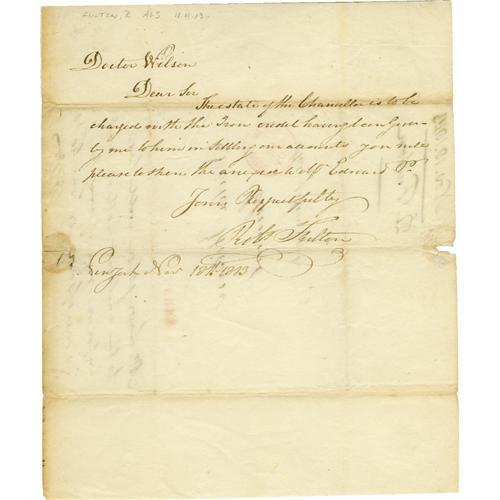 FULTON, R ALS 11.11.13
Doctor Wilson
Dear Sir
The estate of the Chancellor is to be
charged with the Iron credit having been Given
by me to him in settling our accounts you will
please to them the Edward P.
Yours Respectfully
Robt Fulton
Nov 18th 1813